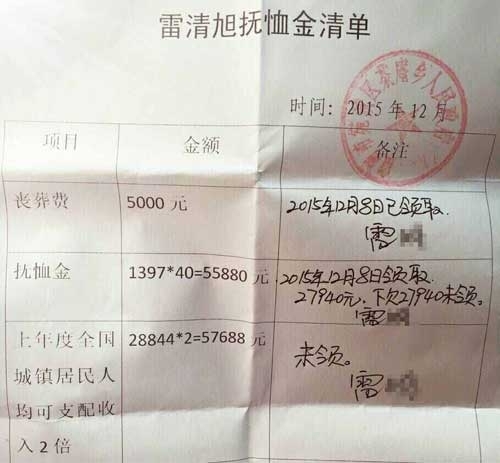 雷清旭抚恤金清单
时间：2015年12月
项目 金额 备注
丧葬费 5000元 2015年12月8日已领取.
雷
抚恤金 1397*40=55880元 2015年12月8日领取
27940元，下欠27940未领。
雷
上年度全国 28844*2=57688元 未领。
城镇居民人 雷
均可支配收
入2倍